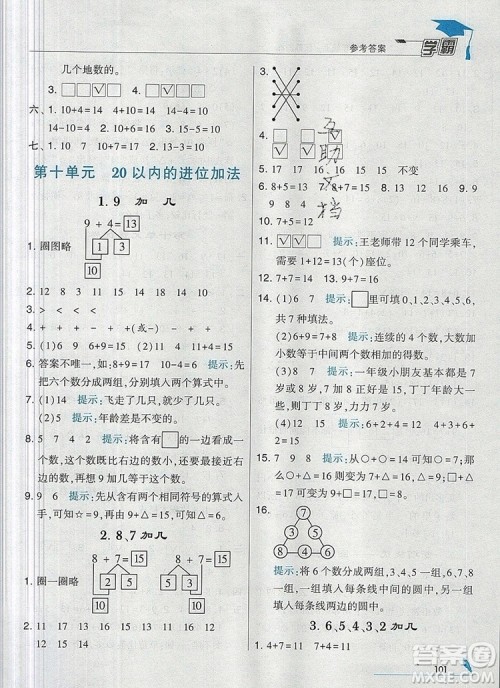 参考答案
学霸
几个地数的。
3. □□☑□
六、1. 10+4=14 4+10=14 14-4=10
14-10=4 2. 8+2=10
七、1. 10+6=16 2. 15-4=11
第十单元 20以内的进位加法
1. 9 加 几
9 + 4 = 13
1 3
10
1. 圈图略
2. 12 8 13 11 15 14 16 17
3. > < > < > =
4. + + - + -(或+) -(或+)
5. (1)6 15 (2)11 4+11=15
6. 答案不唯一,如:8+9=17 10-4=6 提示:先
把六个数分成两组,分别填入两个算式中。
7. (1)4 提示:飞走了几只,就少了几只。
(2)5 提示:年龄差是不变的。
8. 5 7 4 2 提示:将含有□的一边看成一
个数,这个数既比右边的数小,又最接近右边
的数,再想9加几等于这个数。
9. 9 6 提示:先在含有两个相同符号的算式入
手,得到☆=9,再由9+△=15,可得△=6。
2. 8、7 加 几
8 + 7 = 15
2 5
10
8 + 7 = 15
5 3
10
1. 圈一圈略
2. 11 17 15 12 14 13 16 15
3.
4. □□☑□ ☑□☑
5. 17 16 16 15 15 不变
6. 8+5=13 7+8=15 7. < > = <
9 9 8 4) 8. 9 8 9.
10. 7+5=12
11. ☑☑□ 提示:王老师带12名同学乘车,
需要1+12=13(个)座位。
12. 7+7=14 13. 9+7=16
14. (1)6 7 提示:□里可填0、1、2、3、4、5、6,
共7种填法。
(2)6 8 提示:连续的4个数,大数加
小数等于中间两个数相加的得数。
(3)7 8 提示:一年级小朋友基本都是7
岁或8岁,7+8=15,所以丁丁年龄是7
岁时,亮亮8岁;丁丁8岁时,亮亮7岁。
15. 9 7 提示:○-□=2可变为○=□+2,那
么○+□=16可变为□+2+□=16,可得
□=7,○=9。
16.
3
5 7
8 4 6
提示:将6个数分成两组,3、4、5一组,
填入每条线中间的圆中;6、7、8一组
填入每条线两边的圆中。
3. 6、5、4、3、2 加 几
1. 4+7=11 7+4=11 2. 8+7=15
互助文档
101